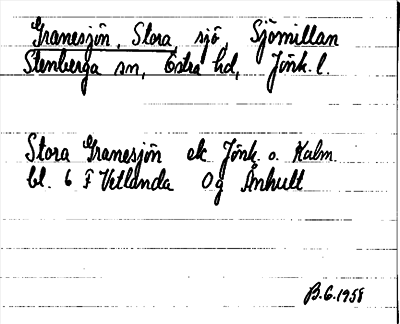 Granesjön, Stora, sjö, Sjömillan
Stenberga sn, Östra hd, Jönk. l.
Stora Granesjön ek Jönk. o. Kalm.
bl. 6 F Vetlanda Og Änhult
B.G. 1958